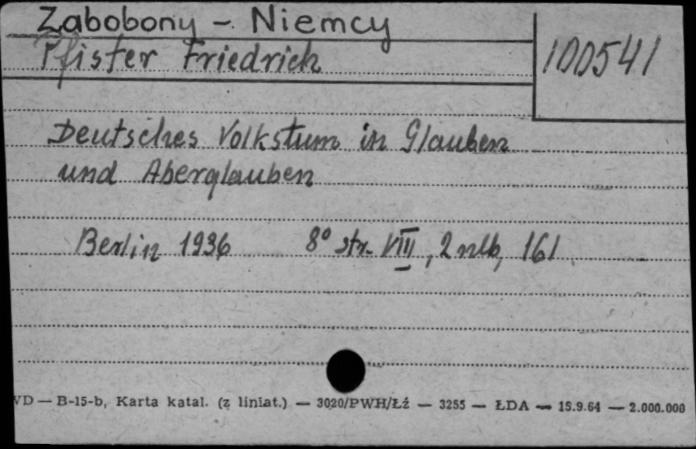 Zabobony - Niemcy
Pfister Friedrich
100541
Deutsches Volkstum in Glauben
und Aberglauben
Berlin 1936 8° str. VIII, 2 nlb, 161
VD — B-15-b, Karta katal. (z liniat.) — 3020/PWH/Łź — 3255 — ŁDA — 15.9.64 — 2.000.000